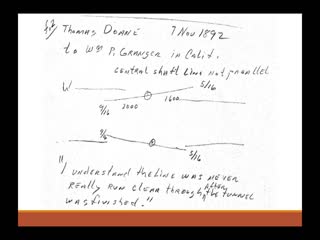 Thomas DOANE 7 Nov 1892
to Wm P. GRANGER in Calif.
CENTRAL Shaft Line not parallel
W 5/16
9/16 2000 1600
9/16 5/16
"I understand the LINE WAS NEVER
REALLY RUN CLEAR through AFTER the TUNNEL
WAS finished."